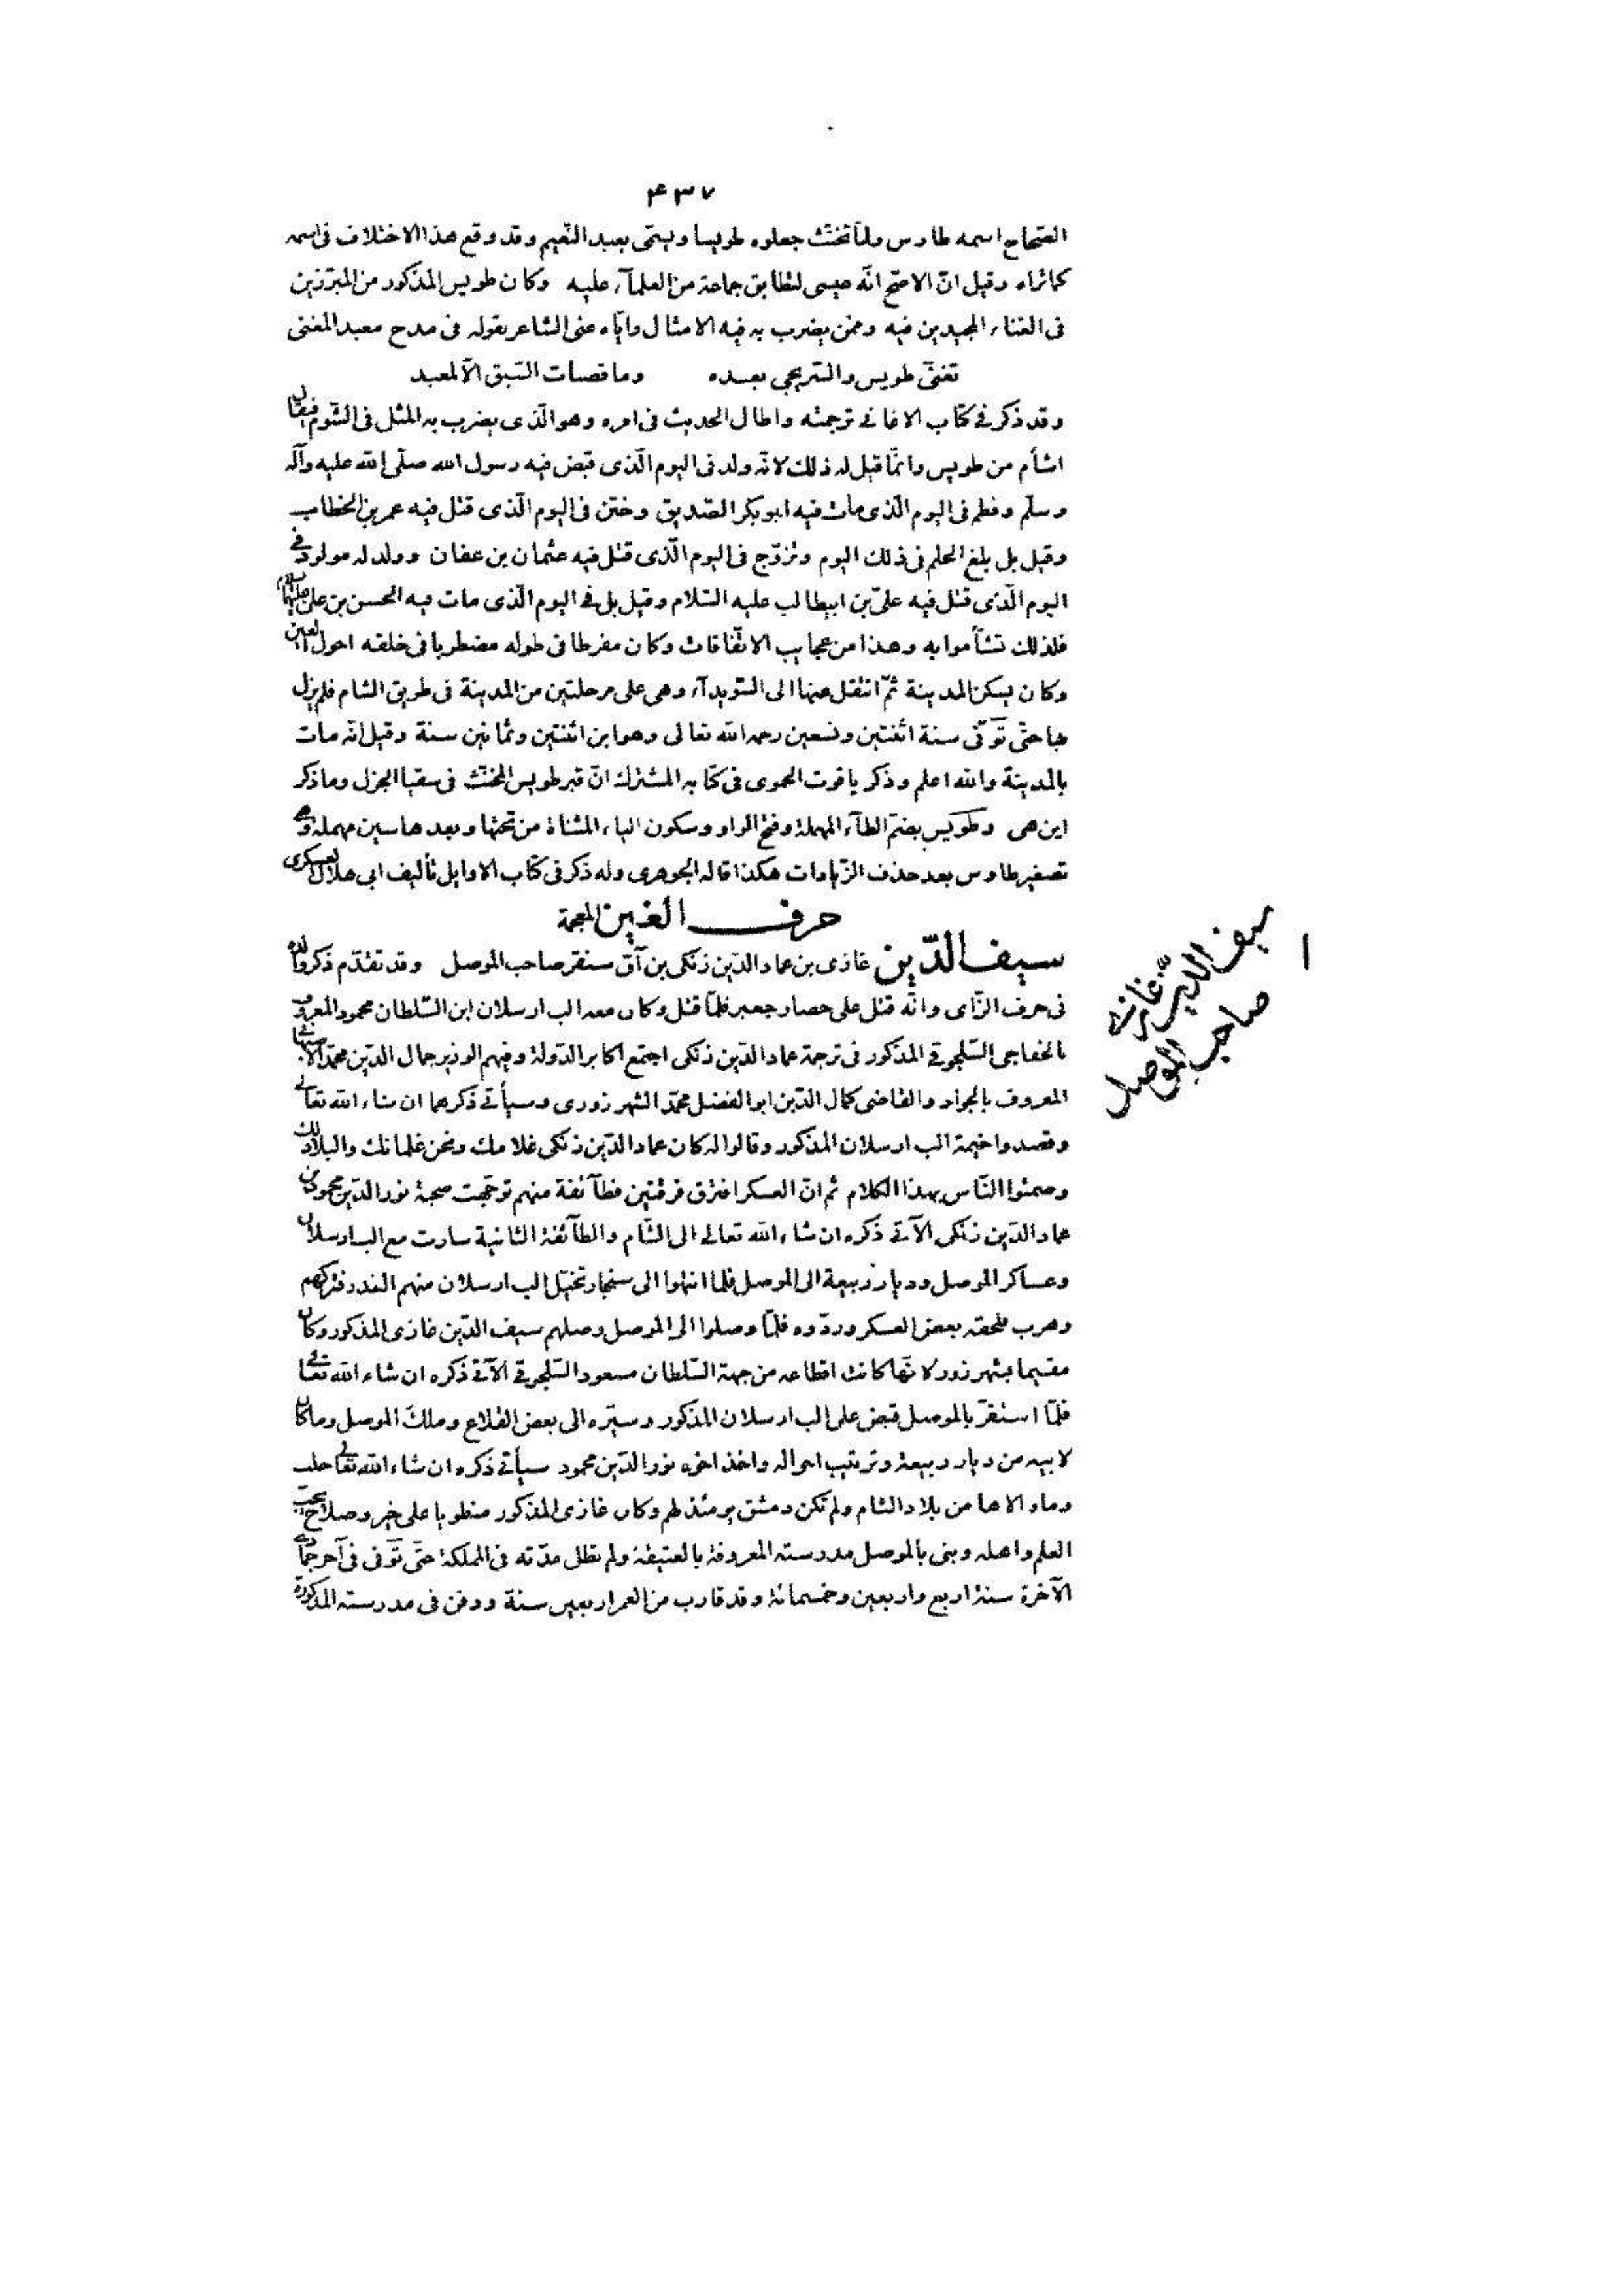 ٤٣٧
الصّحاح اسمه طاوس ولمّا تخنّث جعلوه طويسا ويسمّى بعبد النّعيم وقد وقع هذا الاختلاف فى اسمه
كما تراه وقيل انّ الاصحّ انّه عيسى لتطابق جماعة من العلمآء عليه وكان طويس المذكور من المبرّزين
فى الغناء المجيدين فيه وممّن يضرب به فيه الامثال وايّاه عنى الشاعر بقوله فى مدح معبد المغنى
تغنّى طويس والسّريجى بعده وما قصبات السّبق الّا لمعبد
وقد ذكر فى كتاب الاغانى ترجمته واطال الحديث فى امره وهو الّذى يضرب به المثل فى الشّوم فيقال
اشأم من طويس وانّما قيل له ذلك لانّه ولد فى اليوم الّذى قبض فيه رسول الله صلّى الله عليه وآله
وسلّم وفطم فى اليوم الّذى مات فيه ابو بكر الصّديق وختن فى اليوم الّذى قتل فيه عمر بن الخطاب
وقيل بل بلغ الحلم فى ذلك اليوم وتزوّج فى اليوم الّذى قتل فيه عثمان بن عفان وولد له مولود فى
اليوم الّذى قتل فيه علىّ بن ابيطالب عليه السّلام وقيل بل فى اليوم الّذى مات فيه الحسن بن على عليهما السلام
فلذلك تشأموا به وهذا من عجايب الاتّفاقات وكان مفرطا فى طوله مضطربا فى خلقه احول العين
وكان يسكن المدينة ثمّ انتقل عنها الى السّويدآء وهى على مرحلتين من المدينة فى طريق الشام فلم يزل
بها حتّى توّفى سنة اثنتين وتسعين رحمه الله تعالى وهو ابن اثنتين وثمانين سنة وقيل انّه مات
بالمدينة والله اعلم وذكر ياقوت الحموى فى كتابه المشترك انّ قبر طويس المخنّث فى سقيا الجزل وما ذكر
اين هى وطويس بضمّ الطآء المهملة وفتح الواو وسكون الياء المثناة من تحتها وبعدها سين مهملة وهى
تصغير طاوس بعد حذف الزّيادات هكذا قاله الجوهرى وله ذكر فى كتاب الاوايل تأليف ابى هلال العسكرى
حرف الغين المعجمة
سيف الدّين غازى بن عماد الدّين زنكى بن آق سنقر صاحب الموصل وقد تقدّم ذكر والده
فى حرف الزّاى وانّه قتل على حصار جعبر فلمّا قتل وكان معه الب ارسلان ابن السّلطان محمود المعروف
بالخفاجى السّلجوقى المذكور فى ترجمة عماد الدّين زنكى اجتمع اكابر الدّولة وفيهم الوزير جمال الدّين محمّد الاصبهانى
المعروف بالجواد والقاضى كمال الدّين ابو الفضل محمّد الشهرزورى وسيأتى ذكرهما ان شاء الله تعالى
وقصدوا خيمة الب ارسلان المذكور وقالوا له كان عماد الدّين زنكى غلامك ونحن غلمانك والبلاد لك
وصمتوا النّاس بهذا الكلام ثم انّ العسكر افترق فرقتين فطآئفة منهم توجّهت صحبة نور الدّين محمود بن
عماد الدّين زنكى الآتى ذكره ان شاء الله تعالى الى الشّام والطآئفة الثانية سارت مع الب ارسلان
وعساكر الموصل وديار ربيعة الى الموصل فلما انتهوا الى سنجار تخيّل الب ارسلان منهم الغدر فتركهم
وهرب فلحقه بعض العسكر وردّوه فلمّا وصلوا الى الموصل وصلهم سيف الدّين غازى المذكور وكان
مقيما بشهرزور لانّها كانت اقطاعه من جهة السّلطان مسعود السّلجوقى الآتى ذكره ان شاء الله تعالى
فلمّا استقرّ بالموصل قبض على الب ارسلان المذكور وسيّره الى بعض القلاع وملك الموصل وما كان
لابيه من ديار ربيعة وترتيب احواله واخذ اخوه نور الدّين محمود سيأتى ذكره ان شاء الله تعالى حلب
وما والاها من بلاد الشام ولم تكن دمشق يومئذ لهم وكان غازى المذكور منطويا على خير وصلاح يحبّ
العلم واهله وبنى بالموصل مدرسته المعروفة بالعتيقة ولم تطل مدّته فى المملكة حتّى توّفى فى آخر جمادى
الآخرة سنة اربع واربعين وخمسمائة وقد قارب من العمر اربعين سنة ودفن فى مدرسته المذكورة
١
سيف الدين غازى
صاحب الموصل